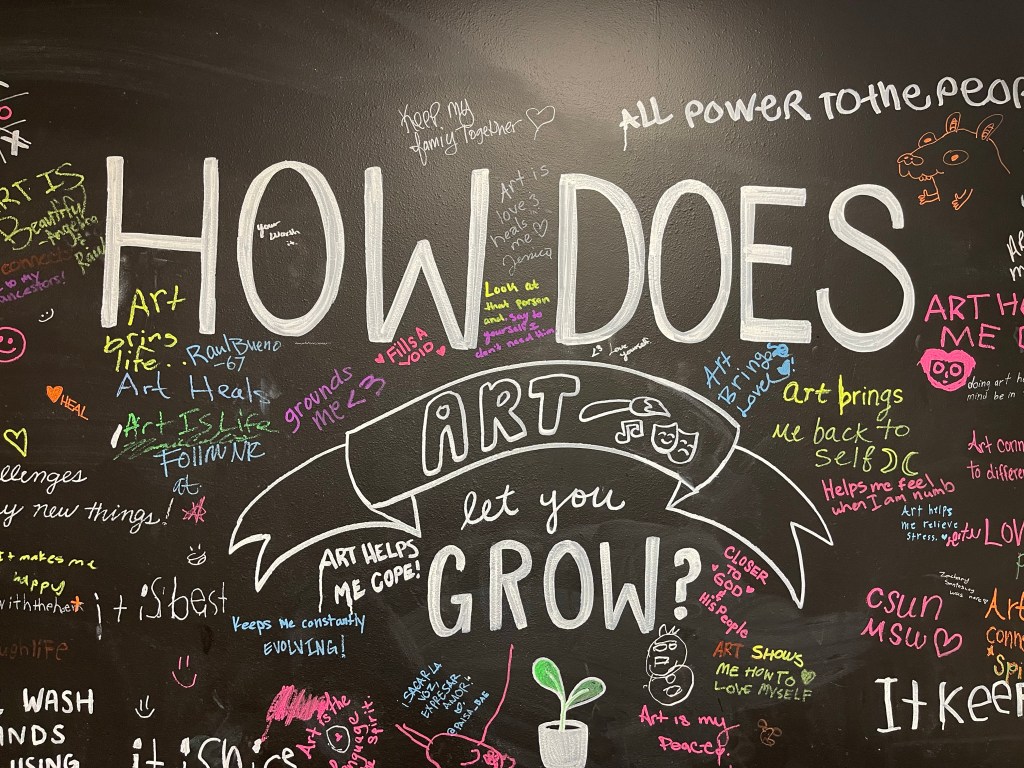 Keep my
famiy Together
ALL POWER TO the PEOP
HOW DOES
ART
let you
GROW?
ART IS
Beautiful
- Angelica
to my
ancestors!
Your
Worth
it.
Art is
love 3
heals
me
Jessica
Look at
that person
and. say to
yourself I
don't need them
Art
bring
life..
Raul Bueno
-67
Art Heals
Art IS Life
Follow NR
at
grounds
me <3
Fills A
VOID
<3 Love
yourself
Art
Brings
Love!
Art brings
me back to
self
Helps me feel
when I am numb
Art helps
me relieve
stress.
ART HO
ME
doing art he
mind be in
Art conn
to differen
LOV
HEAL
allenges
y new things!
It makes me
happy
with the he
it is best
ughlife
ART HELPS
ME COPE!
Keeps me constantly
EVOLVING!
CLOSER
TO
GOD
&
His People
ART SHOWS
ME HOW TO
LOVE MYSELF
Art is my
Peace
Zachary
was here
CSUN
MSW
Art
conn
Spi
It Keep
WASH
NDS
USING
it is nice
Art is the
language
of the
Spirit
SACAR LA
VOZ,
EXPRESAR
AMOR